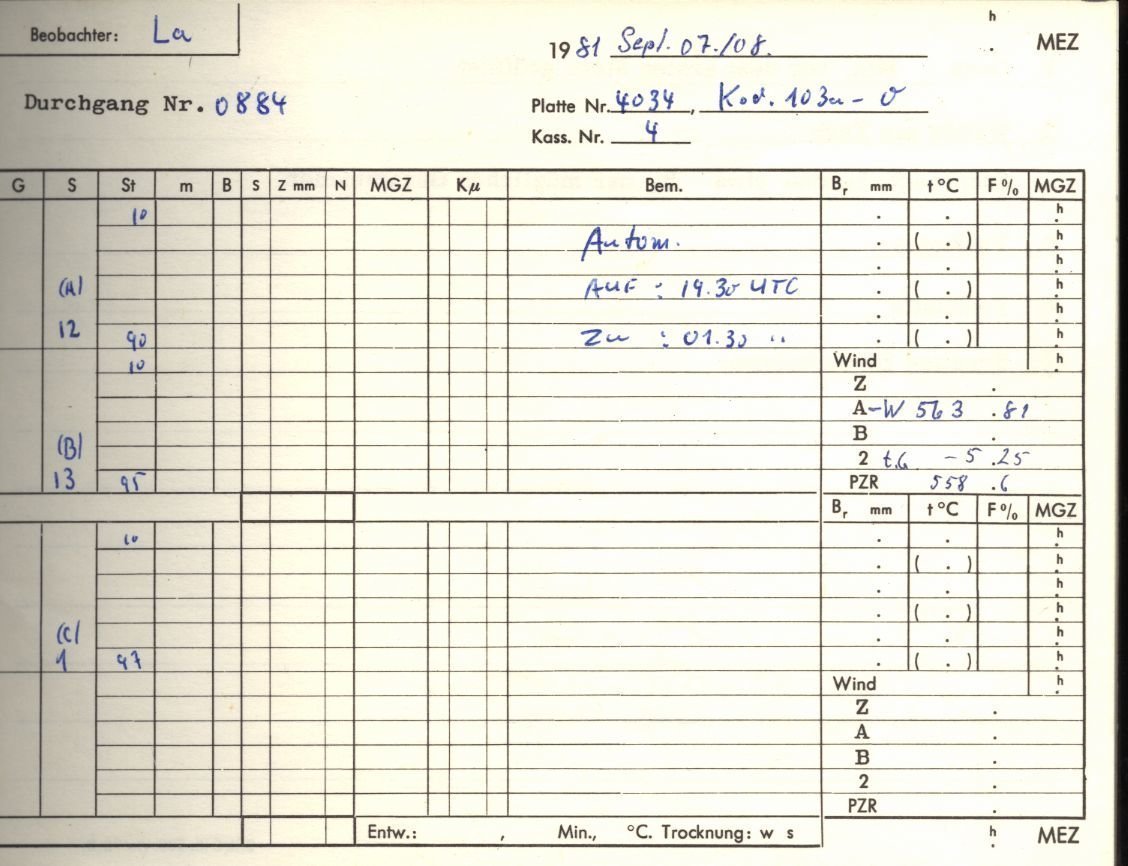 h
Beobachter: La
1981 Sept. 07./08. . MEZ
Durchgang Nr. 0884
Platte Nr. 4034, Kod. 103a-O
Kass. Nr. 4
G S St m B S Z mm N MGZ Kμ Bem. Br mm t °C F % MGZ
10 . . h
Autom. . ( . ) h
. . h
(A) AUF : 19.30 UTC . ( . ) h
12 . . h
90 Zu : 01.30 " . ( . ) h
10 Wind h
Z .
A-W 563 .81
(B) B .
2 t.G - 5 .25
13 95 PZR 558 .6
Br mm t °C F % MGZ
10 . . h
. ( . ) h
. . h
. ( . ) h
(C) . . h
1 97 . ( . ) h
Wind h
Z .
A .
B .
2 .
PZR .
Entw.: , Min., °C. Trocknung: w s h . MEZ